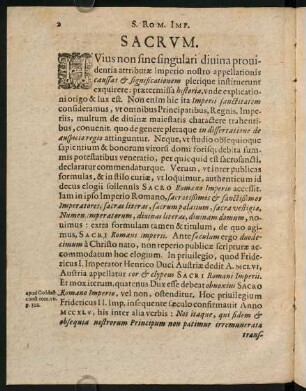 2 S. ROM. IMP.
SACRVM.
HVius non sine singulari divina provi-
dentia attributæ imperio nostro appellationis
caussas & significationem plerique instituerunt
exquirere: prætermissa historia, unde explicatio-
ni origo & lux est. Non enim hic ita Imperii sanctitatem
consideramus, vt omnibus Principatibus, Regnis, Impe-
riis, multum de divinæ maiestatis charactere trahenti-
bus, convenit quo de genere pleraque in dissertatione de
augusta regio attinguntur. Neque, vt studio obsequioque
sapientium & bonorum virorū domi forisq; debita sum-
mis potestatibus veneratio, per quicquid est sacrosancti,
declaratur commendaturque. Verum, vt inter publicas
formulas, & in stilo curiæ, vt loquimur, authenticum id
decus elogii sollennis SACRO Romano Imperio accessit.
Iam in ipso Imperio Romano, sacratissimos & sanctissimos
Imperatores, sacras literas, sacrum palatium, sacra vestigia,
Numen imperatorum, divinas literas, divinam domum, no-
vimus: extra formulam tamen & titulum, de quo agi-
mus, SACRI Romani imperii. Ante seculum ergo duode-
cimum à Christo nato, non reperio publicæ scripturæ ac-
commodatum hoc elogium. In privilegio, quod Fride-
ricus I. Imperator Henrico Duci Austriæ dedit A. MCLVI,
Austria appellatur cor & clypeus SACRI Romani Imperii.
Et mox iterum, quatenus Dux esse debeat obnoxius SACRO
Romano Imperio, vel non, ostenditur. Hoc priuilegium
Fridericus II. Imp. insequente sæculo confirmauit Anno
MCCXLV, his inter alia verbis: Nos itaque, qui fidem &
obsequia nostrorum Principum non patimur irremunerata
trans-
apud Goldast.